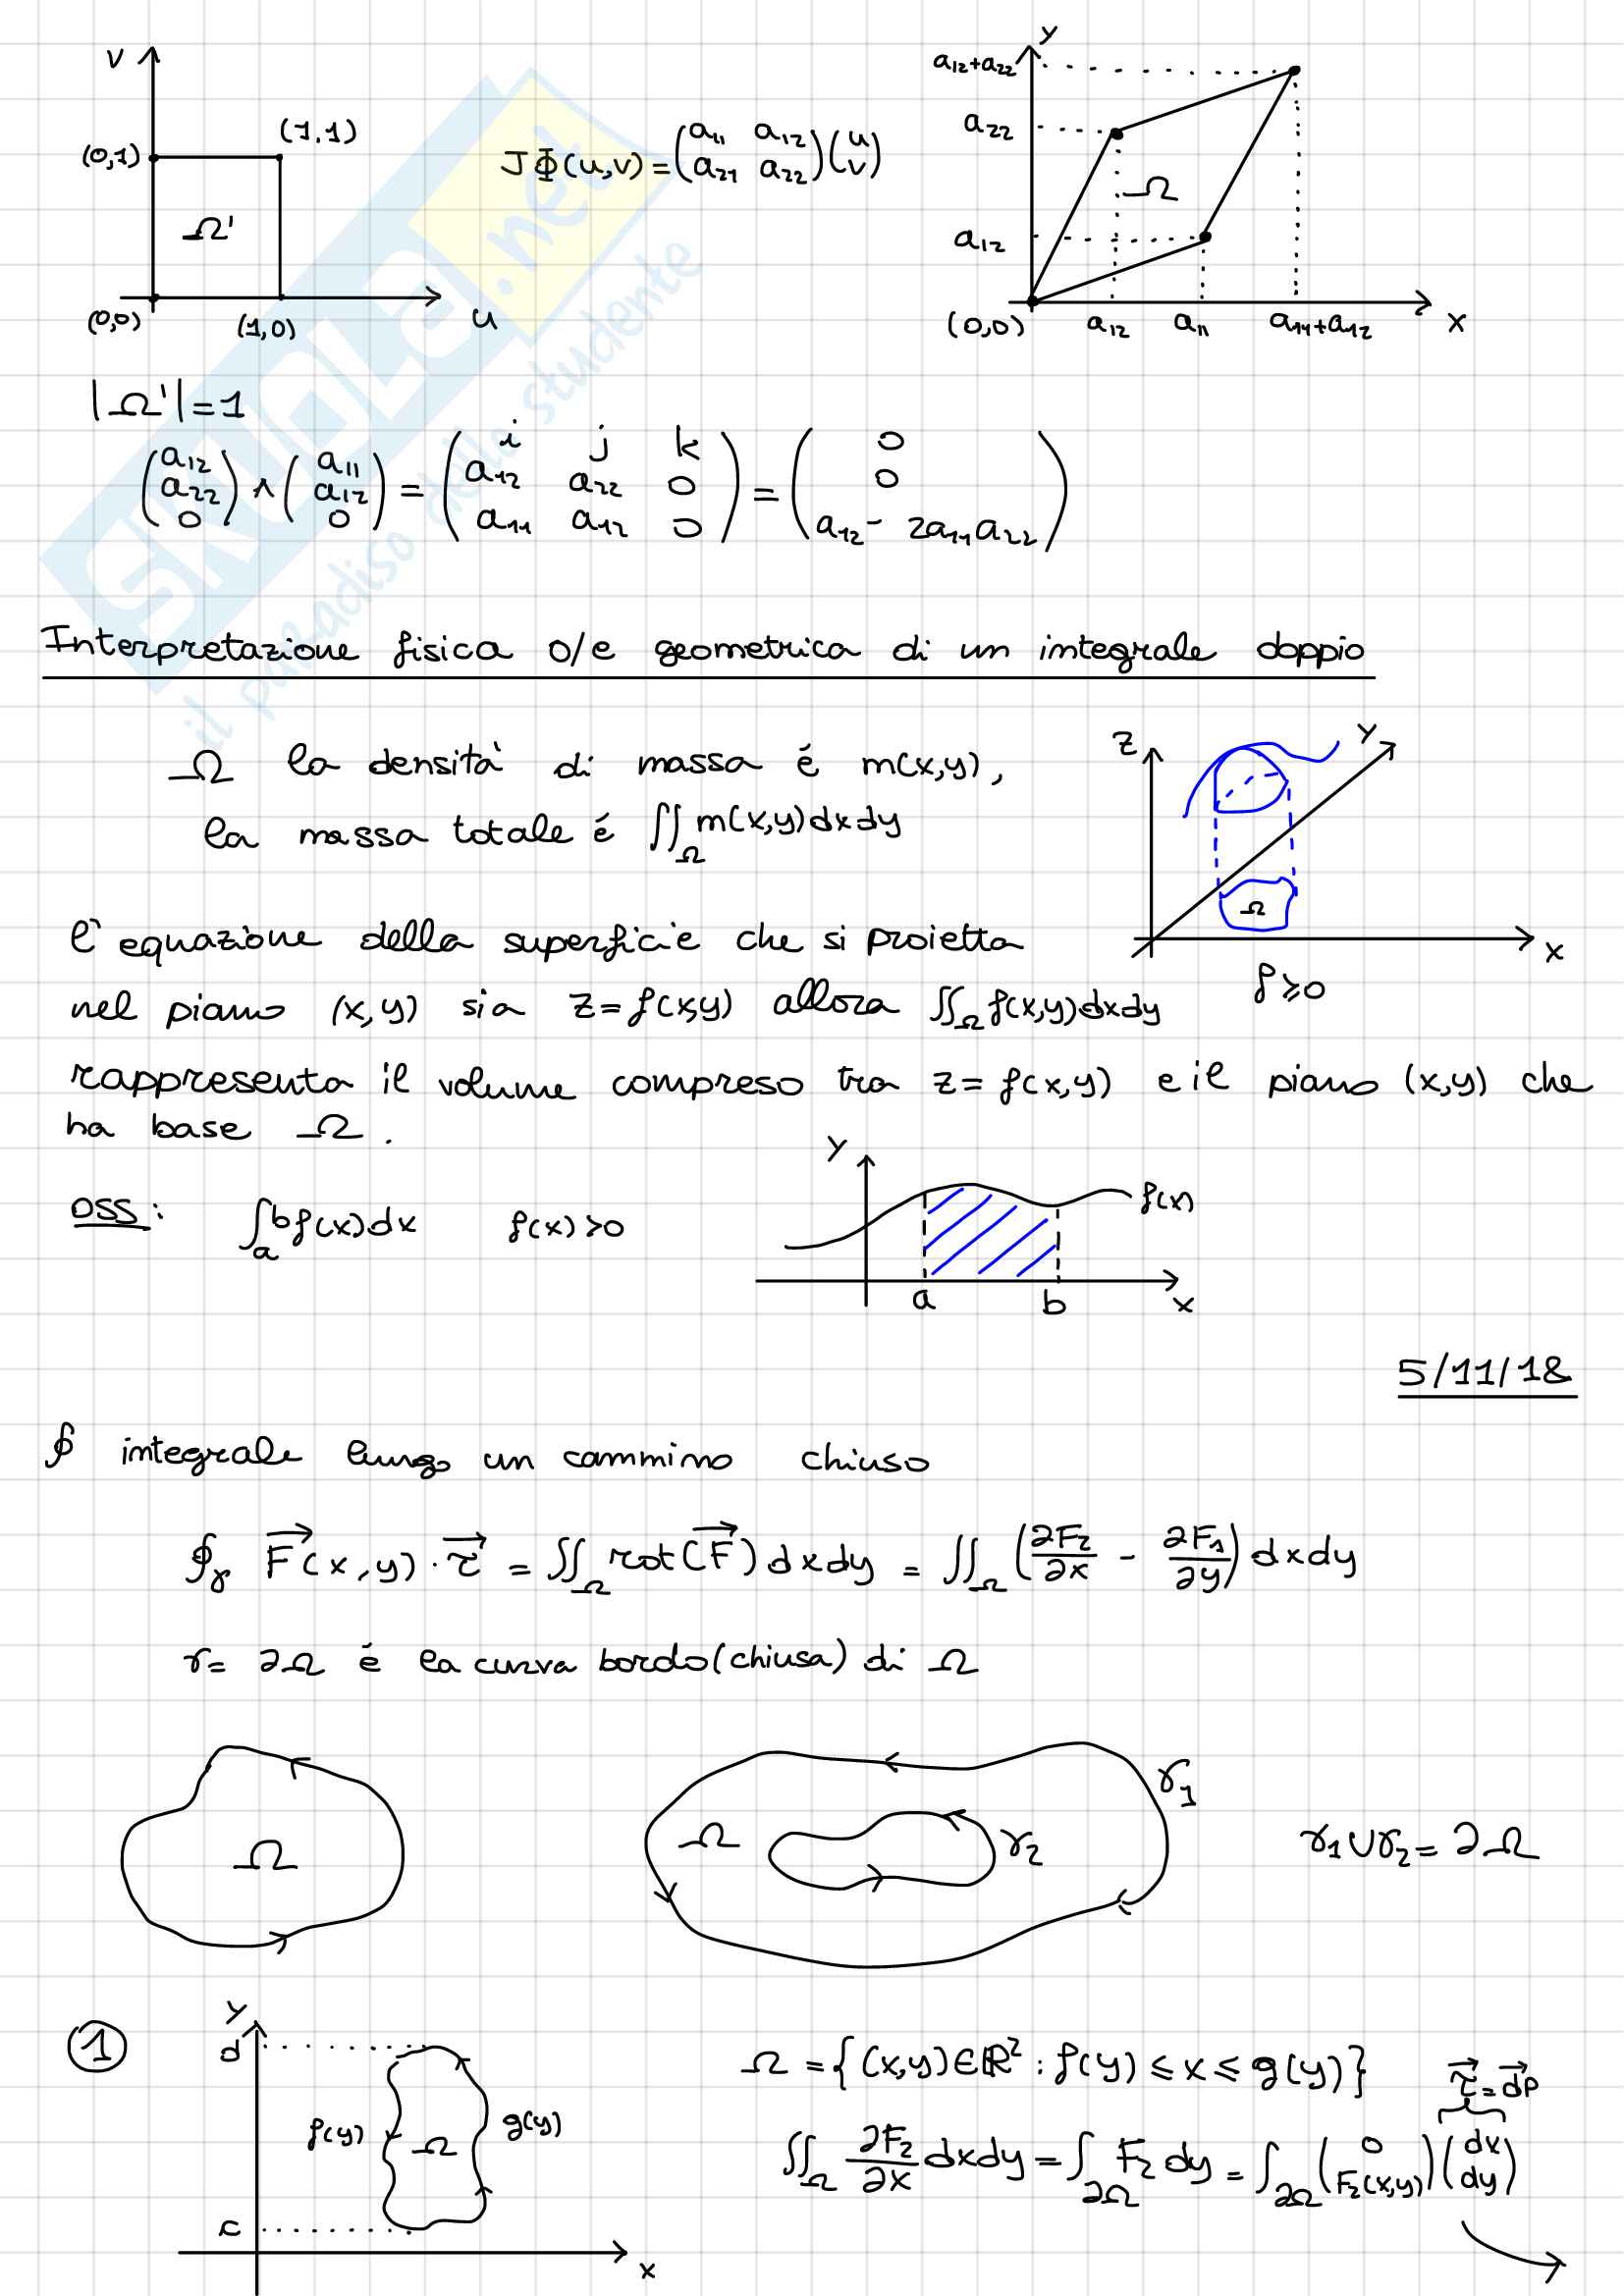 v
(0,1)
(1,1)
Ω'
(0,0)
(1,0)
u
JΦ(u,v) = (a11 a12
a21 a22)(u
v)
y
a12+a22
a22
Ω
a12
(0,0)
a12
a11
a11+a12
x
|Ω'| = 1
(a12
a22
0) ∧ (a11
a12
0) = (i j k
a12 a22 0
a11 a12 0) = (0
0
a12 - 2a11a22)
Interpretazione fisica o/e geometrica di un integrale doppio
Ω la densità di massa é m(x,y),
la massa totale é ∬Ω m(x,y)dxdy
z
y
Ω
x
f⩾0
l'equazione della superficie che si proietta
nel piano (x,y) sia z=f(x,y) allora ∬Ω f(x,y)dxdy
rappresenta il volume compreso tra z= f(x,y) e il piano (x,y) che
ha base Ω.
OSS: ∫a^b f(x)dx f(x)>0
y
f(x)
a
b
x
5/11/18
∮ integrale lungo un cammino chiuso
∮γ F⃗(x,y)·τ⃗ = ∬Ω rot(F⃗)dxdy = ∬Ω (∂F2/∂x - ∂F1/∂y)dxdy
γ= ∂Ω é la curva bordo (chiusa) di Ω
Ω
Ω
γ1
γ2
γ1∪γ2= ∂Ω
1
y
d
f(y)
Ω
g(y)
c
x
Ω = {(x,y)∈ℝ²: f(y) ≤ x ≤ g(y)}
τ⃗ = dP⃗
∬Ω ∂F2/∂x dxdy = ∫∂Ω F2 dy = ∫∂Ω (0
F2(x,y))(dx
dy)
SKUOLa.net
il paradiso dello studente